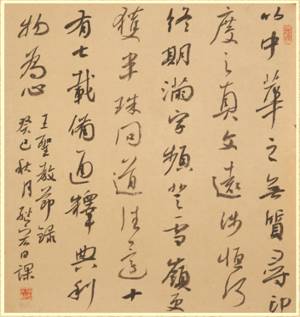 以中華之無質尋印
度之真文遠涉恆河
終期滿字頻登雪嶺更
獲半珠問道往還十
有七載備通釋典利
物為心
王聖教節錄
癸巳秋月日課